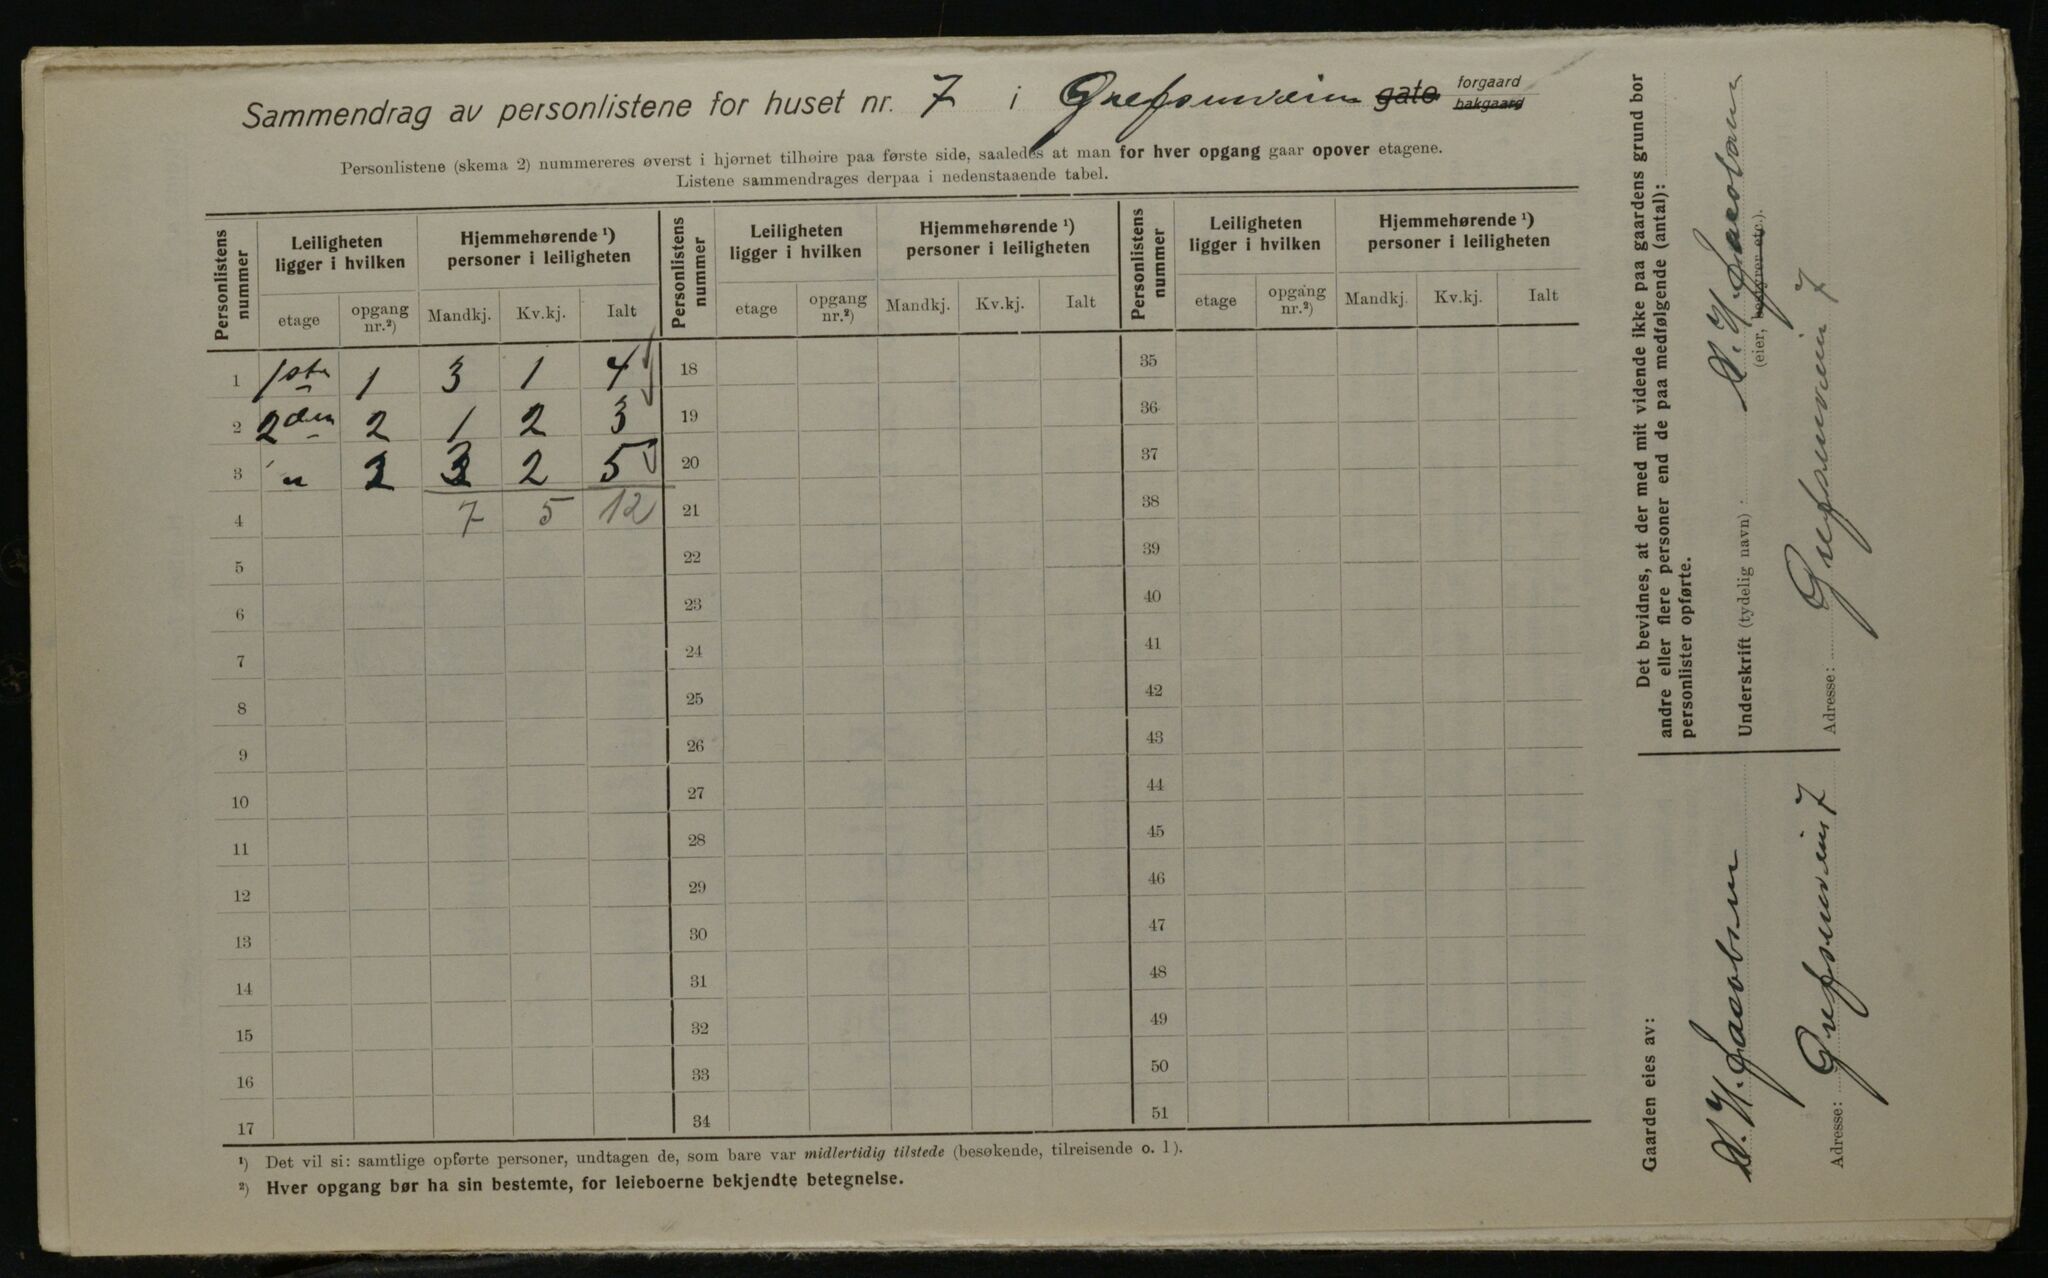 Sammendrag av personlistene for huset nr. 7 i Grefsenveien gate forgaard bakgaard
Personlistene (skema 2) nummereres øverst i hjørnet tilhøire paa første side, saaledes at man for hver opgang gaar opover etagene.
Listene sammendrages derpaa i nedenstaaende tabel.
Personlistens nummer Leiligheten ligger i hvilken Hjemmehørende ¹) personer i leiligheten Personlistens nummer Leiligheten ligger i hvilken Hjemmehørende ¹) personer i leiligheten Personlistens nummer Leiligheten ligger i hvilken Hjemmehørende ¹) personer i leiligheten
etage opgang nr.²) Mandkj. Kv.kj. Ialt etage opgang nr.²) Mandkj. Kv.kj. Ialt etage opgang nr.²) Mandkj. Kv.kj. Ialt
1 1ste 1 3 1 4 18 35
2 2den 2 1 2 3 19 36
3 " 2 3 2 5 20 37
4 7 5 12 21 38
5 22 39
6 23 40
7 24 41
8 25 42
9 26 43
10 27 44
11 28 45
12 29 46
13 30 47
14 31 48
15 32 49
16 33 50
17 34 51
¹) Det vil si: samtlige opførte personer, undtagen de, som bare var midlertidig tilstede (besøkende, tilreisende o. l).
²) Hver opgang bør ha sin bestemte, for leieboerne bekjendte betegnelse.
Gaarden eies av:
H. Jacobsen
Adresse: Grefsenveien 7
Det bevidnes, at der med mit vidende ikke paa gaardens grund bor
andre eller flere personer end de paa medfølgende (antal):
personlister opførte.
Underskrift (tydelig navn): H. Jacobsen
(eier, bestyrer etc.).
Adresse: Grefsenveien 7